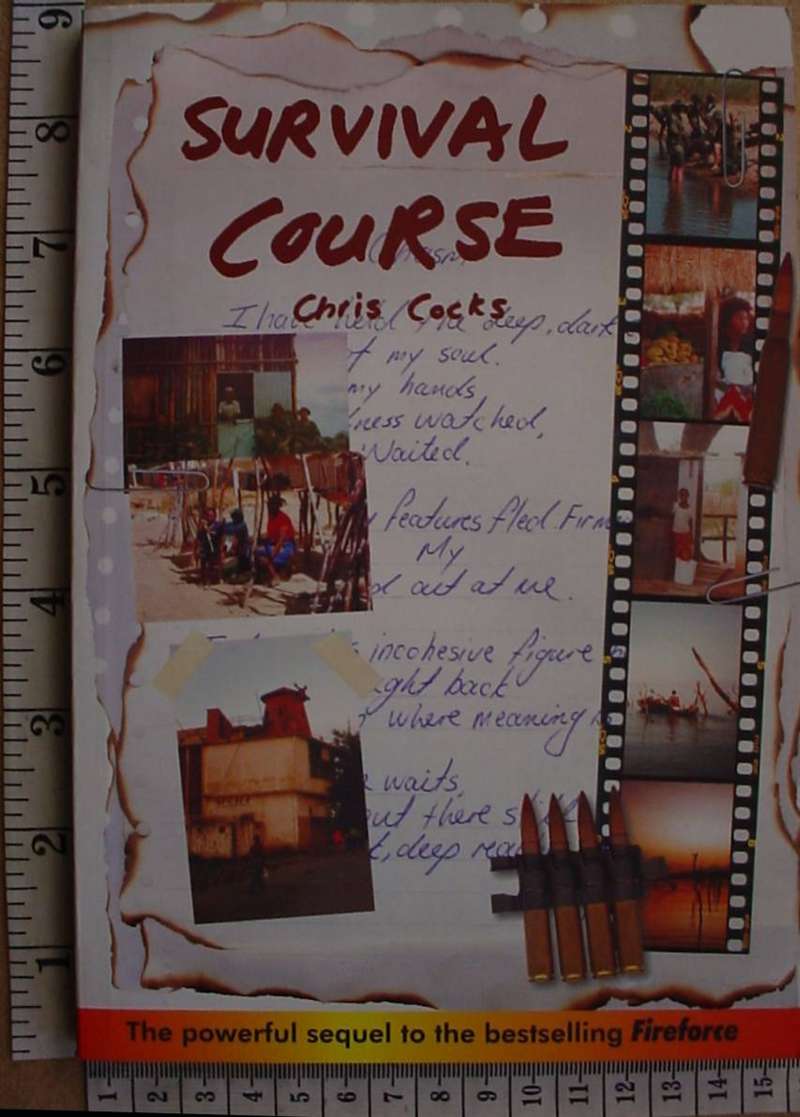 SURVIVAL
COURSE
Chris Cocks
I have held the deep, dark
of my soul.
my hands
ness watched,
Waited.
features fled. Firm
My
out at me.
incohesive figure
ght back
where meaning
waits,
out there still
deep
The powerful sequel to the bestselling Fireforce
9
8
7
6
5
4
3
2
1
1 2 3 4 5 6 7 8 9 10 11 12 13 14 15